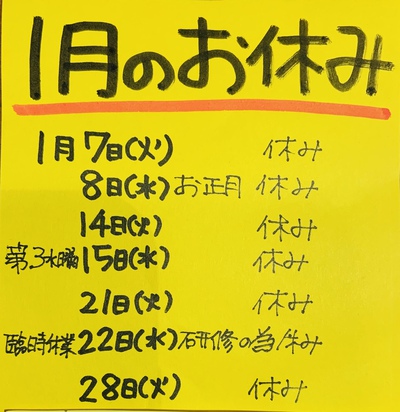 1月のお休み
1月7日(火) 休み
8日(水)お正月 休み
14日(火) 休み
第3水曜15日(水) 休み
21日(火) 休み
臨時休業22日(水)研修の為休み
28日(火) 休み